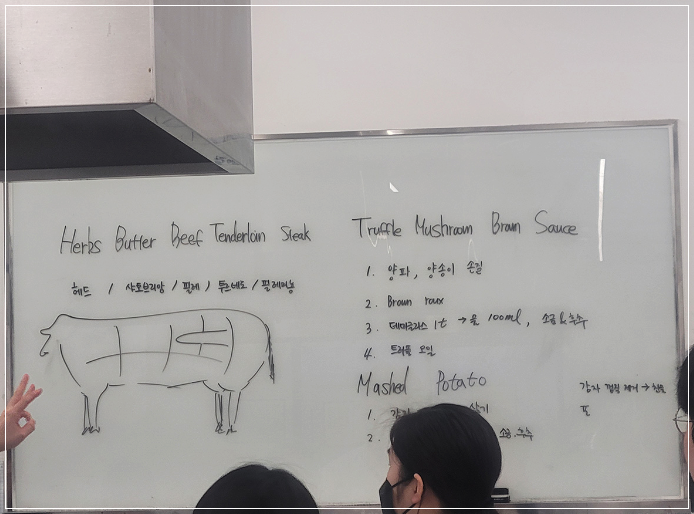 Herbs Butter Beef Tenderloin Steak
헤드 / 샤또브리앙 / 필레 / 투르네도 / 필레미뇽
Truffle Mushroom Brown Sauce
1. 양파, 양송이 손질
2. Brown roux
3. 데미글라스 1t → 물 100ml, 소금 & 후추
4. 트러플 오일
Mashed Potato
1. 감자 삶기
2. 소금, 후추
감자 껍질 제거 →